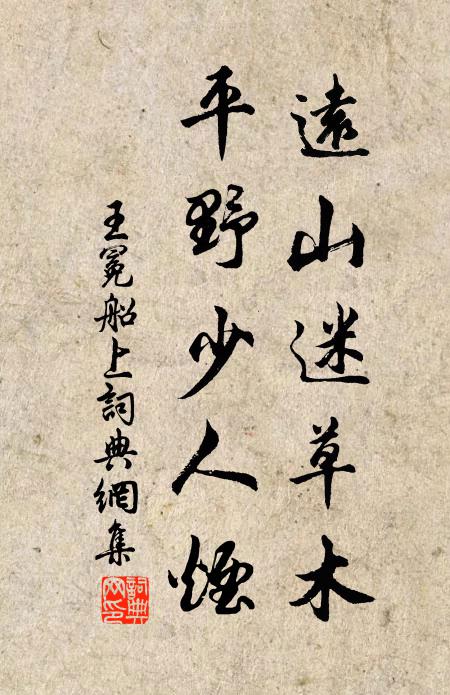 遠山迷草木
平野少人煙
王冕船上詞典網集
詞典网印